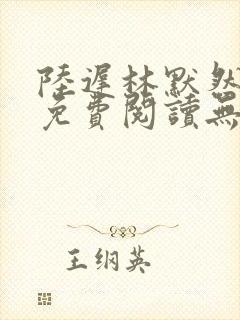 陸遲林默然
免費閱讀無
王纲英